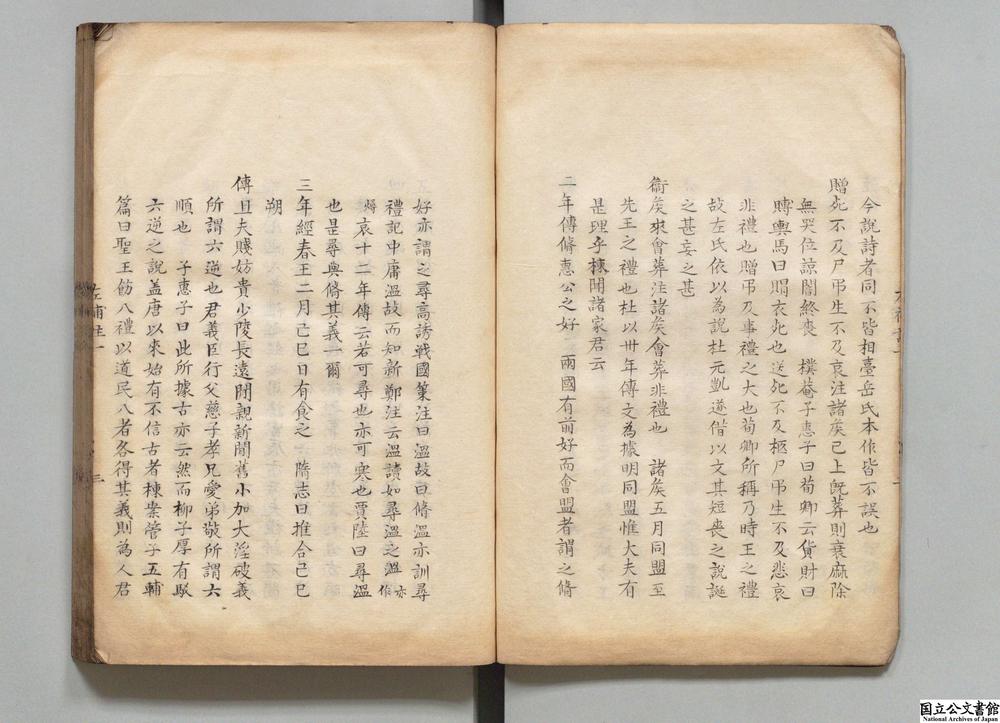 今說詩者同不皆相臺岳氏本作皆不誤也
贈死不及尸弔生不及哀注諸矦已上旣葬則衰麻除
無哭位諒闇終喪　樸菴子惠子曰荀卿云貨財曰
賻輿馬曰賵衣死也送死不及柩尸弔生不及悲哀
非禮也贈弔及事禮之大也荀卿所稱乃時王之禮
故左氏依以為說杜元凱遂借以文其短喪之說誕
之甚妄之甚
衞矦來會葬注諸矦會葬非禮也　諸矦五月同盟至
先王之禮也杜以卅年傳文為據明同盟惟大夫有
是理乎棟聞諸家君云
二年傳脩惠公之好　兩國有前好而會盟者謂之脩
好亦謂之尋高誘戰國策注曰溫故曰脩溫亦訓尋
禮記中庸溫故而知新鄭注云溫讀如尋溫之溫亦作
燖哀十二年傳云若可尋也亦可寒也賈陸曰尋溫
也是尋與脩其義一爾
三年經春王二月己巳日有食之　隋志曰推合己巳
朔
傳且夫賤妨貴少陵長遠閒親新閒舊小加大淫破義
所謂六逆也君義臣行父慈子孝兄愛弟敬所謂六
順也　子惠子曰此所據古亦云然而柳子厚有駁
六逆之說蓋唐以來始有不信古者棟案管子五輔
篇曰聖王飭八禮以道民八者各得其義則為人君
左補注一
三
国立公文書館
National Archives of Japan